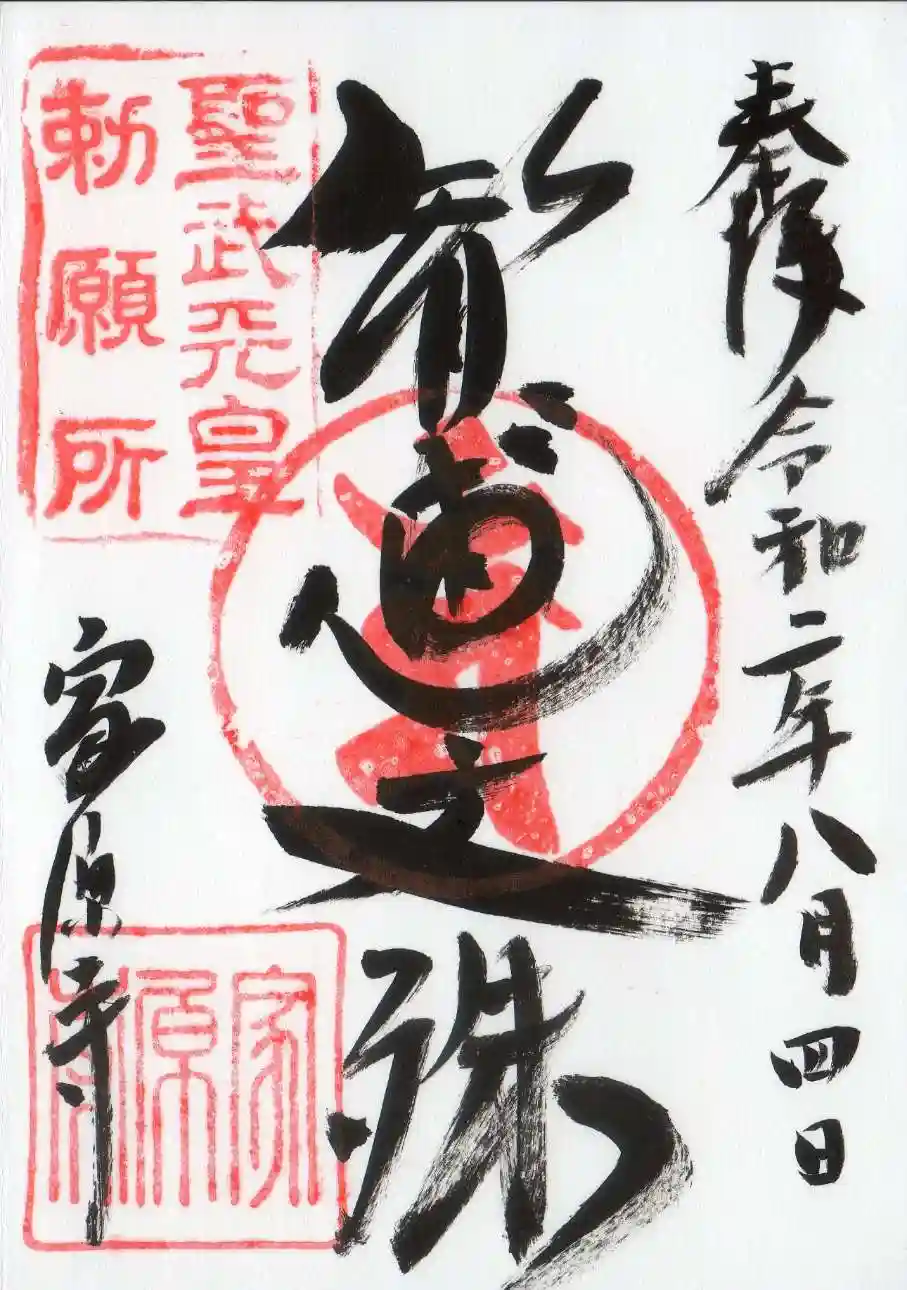 奉拝
令和二年八月四日
智恵文殊
家原寺
聖武天皇
勅願所
家原寺